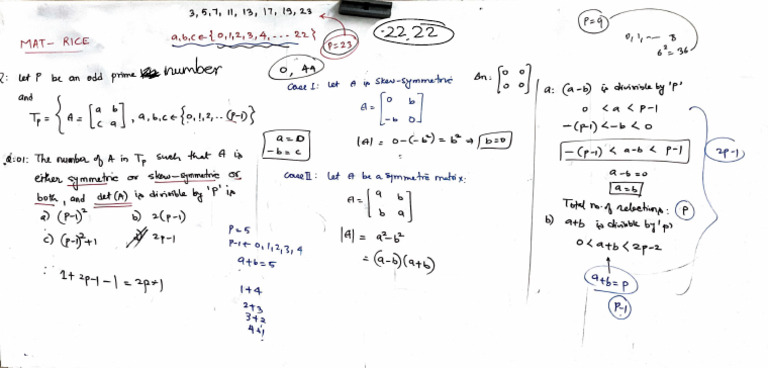 3, 5, 7, 11, 13, 17, 19, 23
MAT- RICE
a,b,c ∈ {0,1,2,3,4,... 22}
P=23
22.22
P=9
0, 1, ... 8
6² = 36
Let P be an odd prime number
and
Tp = { A = [a b c a], a,b,c ∈ {0,1,2,..(p-1)}
Q:01: The number of A in Tp such that A is
either symmetric or skew-symmetric or
both, and det(A) is divisible by 'p' is
a) (P-1)² b) 2(p-1)
c) (p-1)²+1 d) 2p-1
∴ 1+2p-1-1 = 2p-1
0, 44
a=0
-b=c
P=5
p-1 ← 0,1,2,3,4
a+b=5
1+4
2+3
3+2
4+1
Case I: Let A is skew-symmetric
A = [0 b -b 0]
|A| = 0-(-b²) = b² ⇒ b=0
An: [0 0 0 0]
Case II: Let A be a symmetric matrix:
A = [a b b a]
|A| = a²-b²
= (a-b)(a+b)
a: (a-b) is divisible by 'p'
0 < a < p-1
-(p-1) < -b < 0
-(p-1) < a-b < p-1
a-b=0
a=b
Total no. of selections: P
b) a+b is divisible by 'p'
0 < a+b < 2p-2
a+b=p
P-1
2p-1